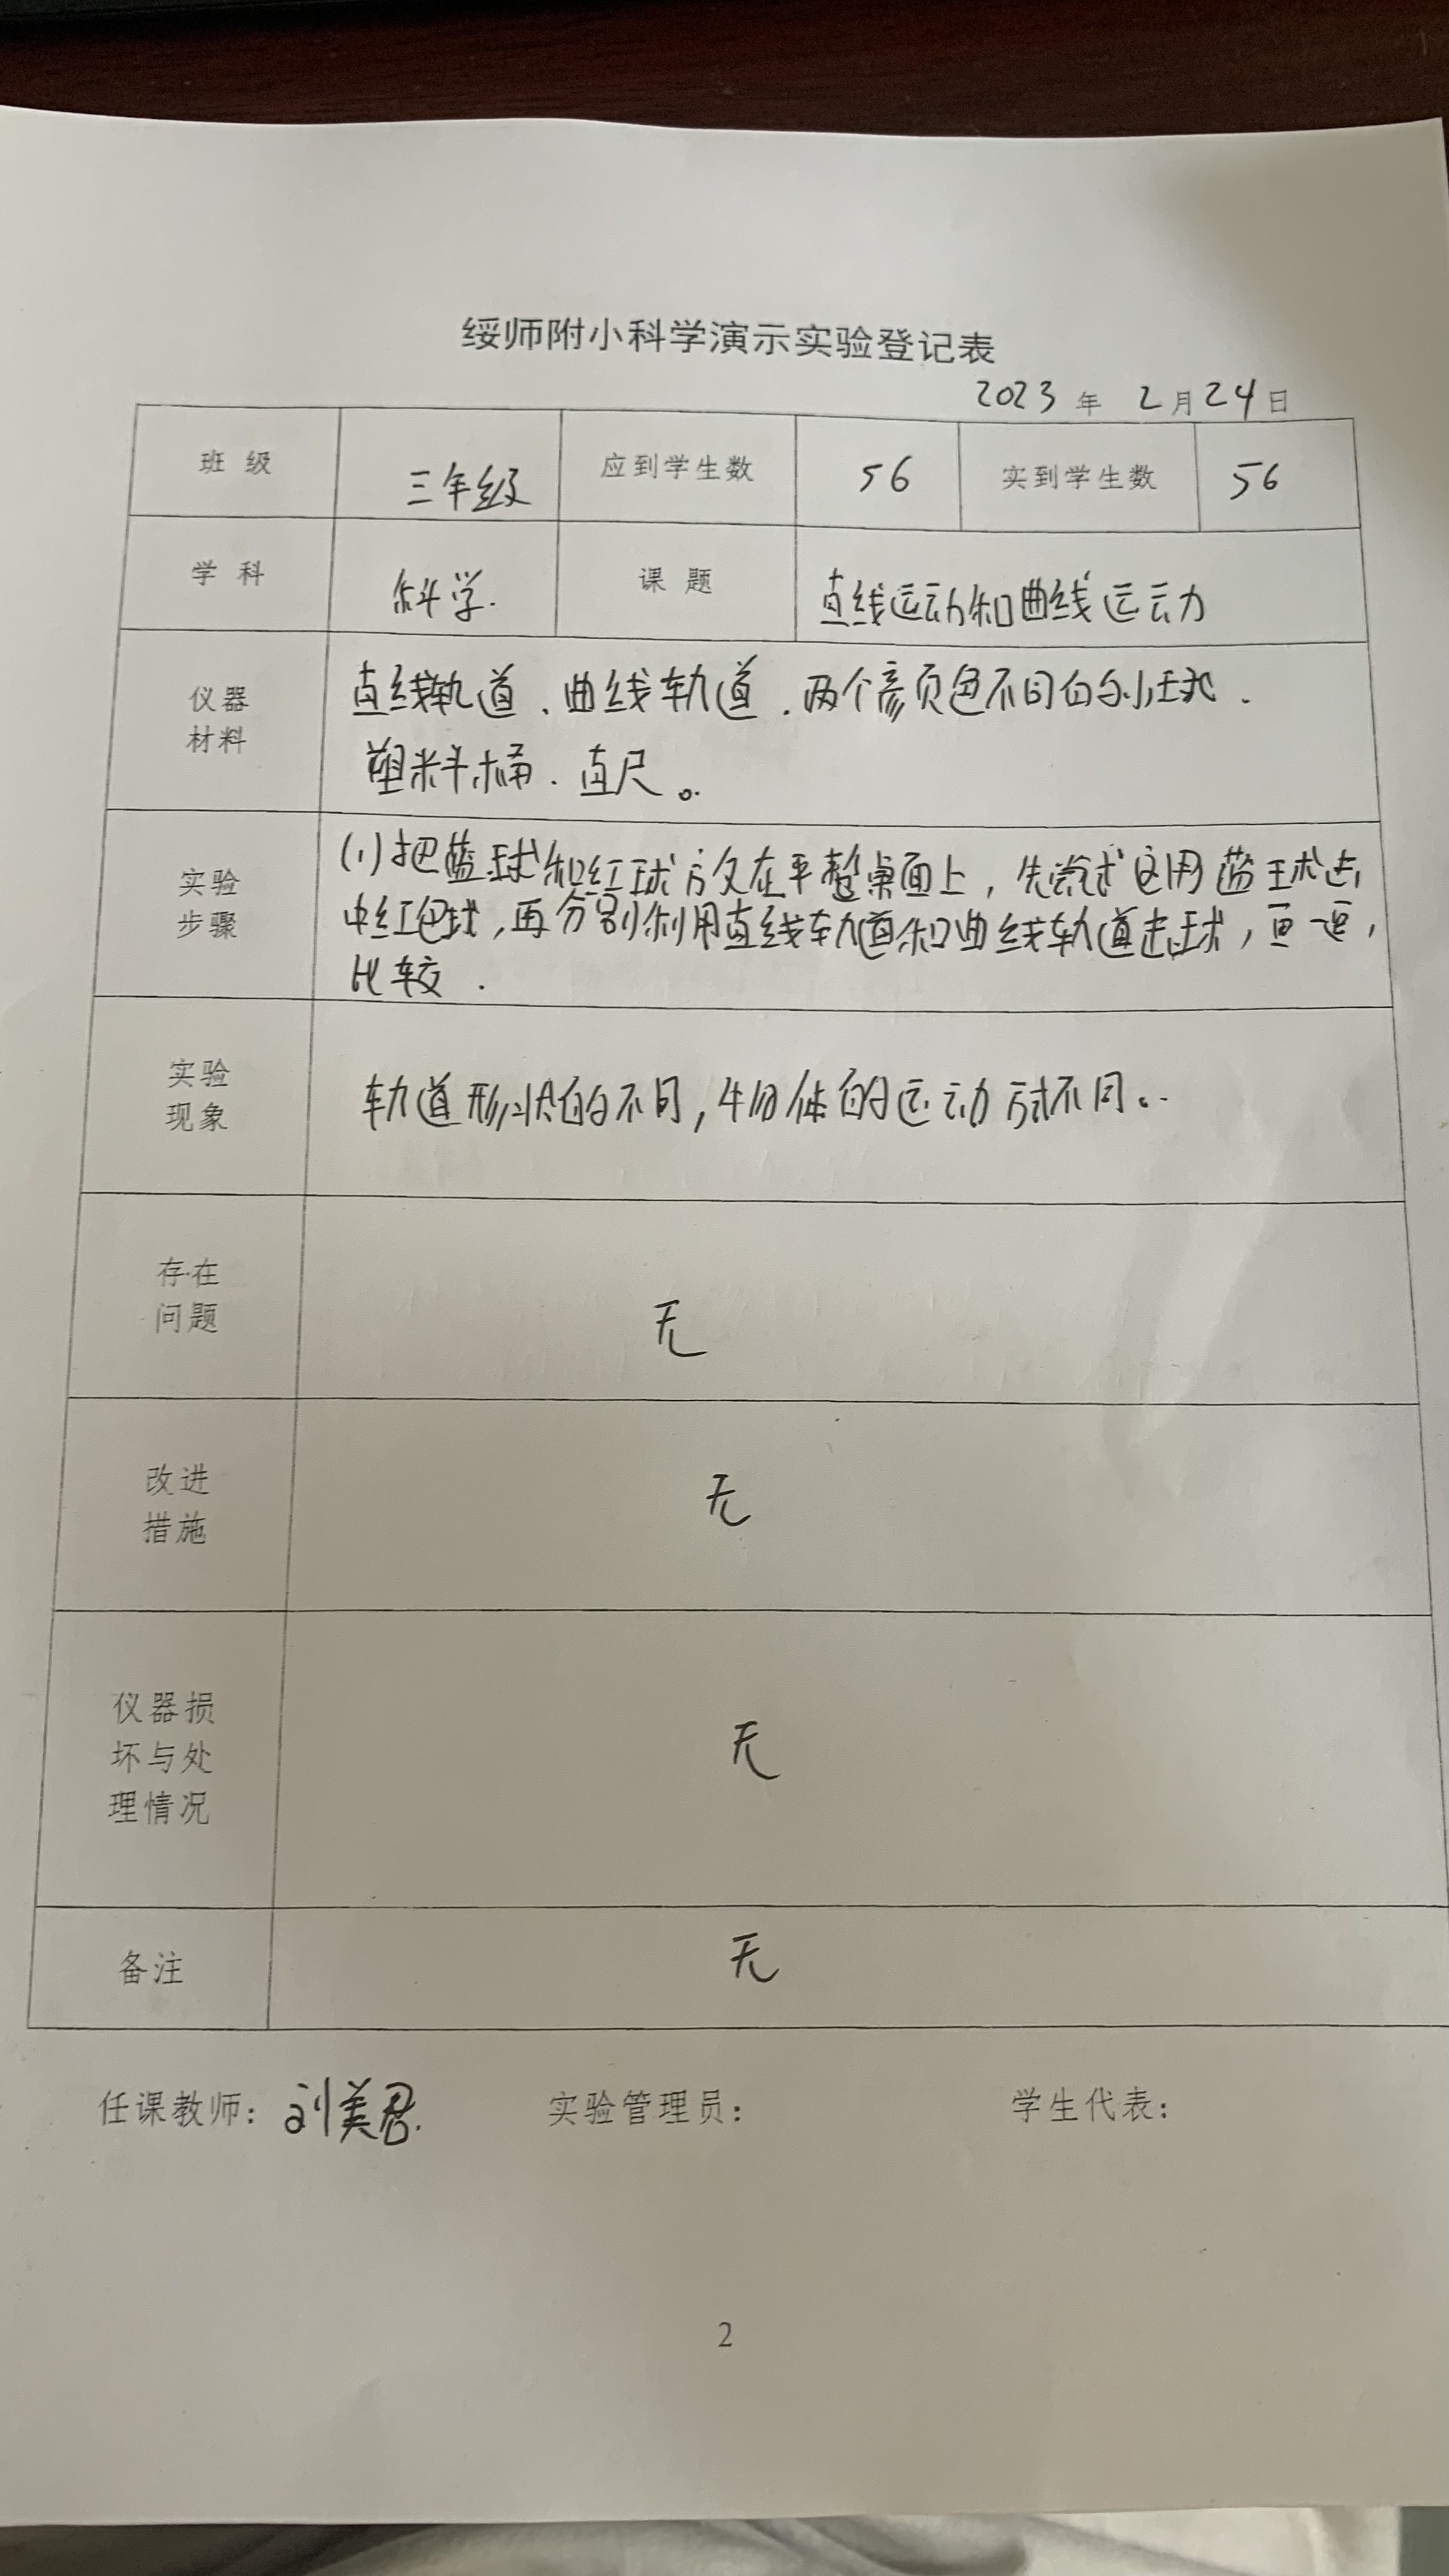 绥师附小科学演示实验登记表
2023 年 2 月 24 日
班 级 三年级 应到学生数 56 实到学生数 56
学 科 科学. 课 题 直线运动和曲线运动
仪器
材料
直线轨道、曲线轨道、两个颜色不同的小球、
塑料桶、直尺。
实验
步骤
(1)把蓝球和红球放在平整桌面上，先尝试用蓝球击
中红色球，再分别利用直线轨道和曲线轨道击球，画一画，
比较.
实验
现象
轨道形状的不同，物体的运动方式不同。
存在
问题
无
改进
措施
无
仪器损
坏与处
理情况
无
备注 无
任课教师：刘美君. 实验管理员： 学生代表：
2